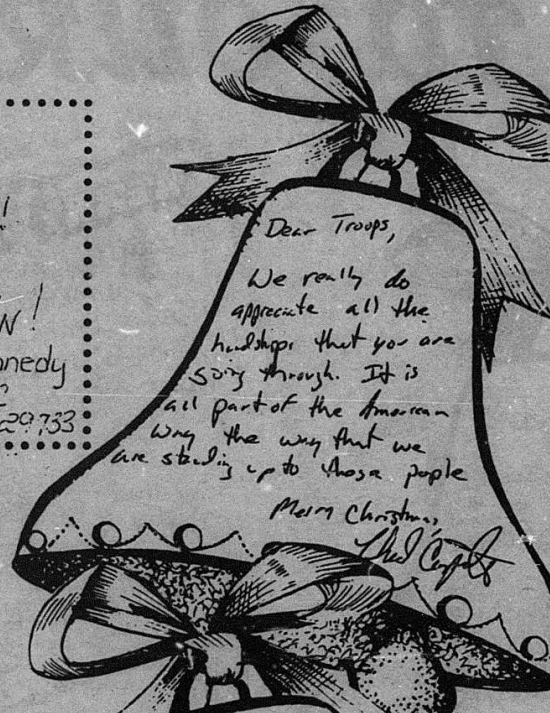 !
N!
nnedy
29733
Dear Troops,
We really do
appreciate all the
hardships that you are
going through. It is
all part of the American
way the way that we
are standing up to those people
Merry Christmas,